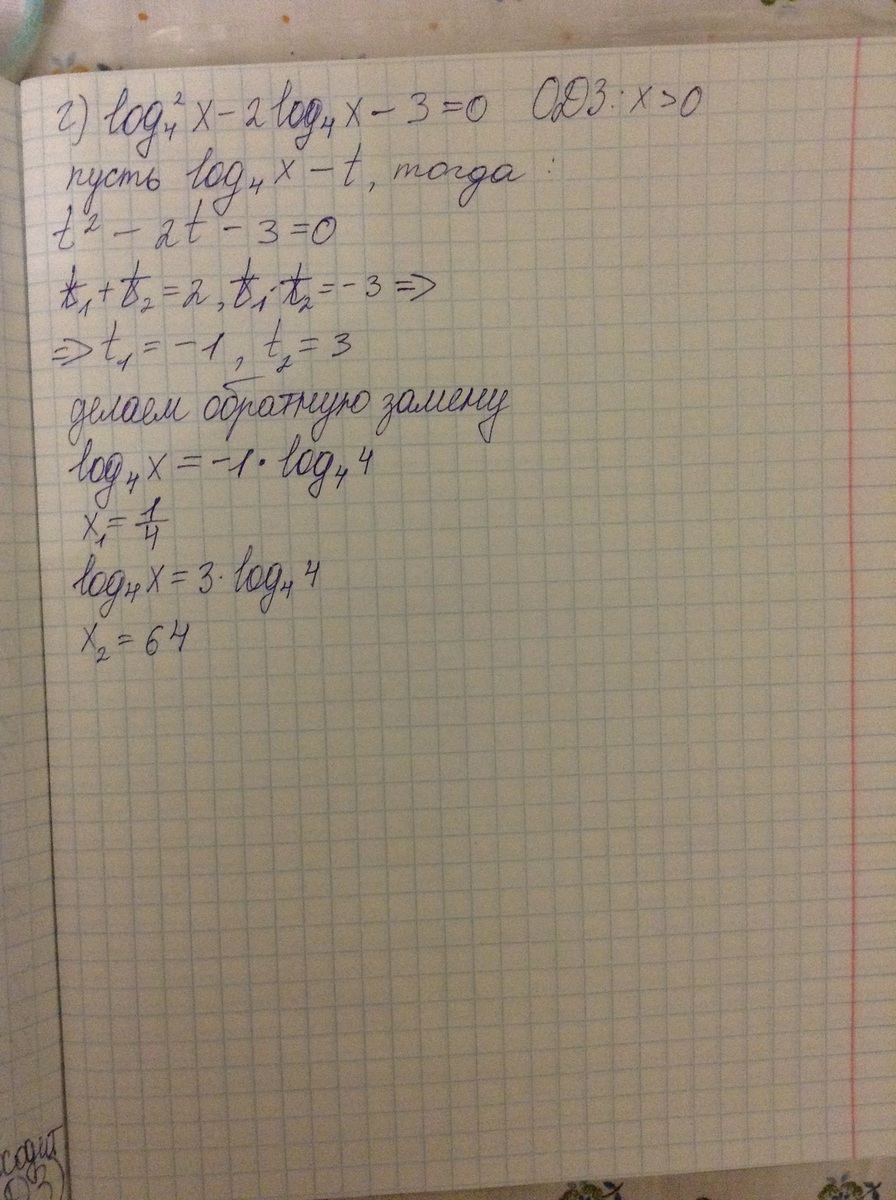 г) log₄² x - 2 log₄ x - 3 = 0 ОДЗ: x > 0
пусть log₄ x - t, тогда:
t² - 2t - 3 = 0
t₁ + t₂ = 2, t₁ · t₂ = -3 =>
=> t₁ = -1, t₂ = 3
делаем обратную замену
log₄ x = -1 · log₄ 4
x₁ = 1/4
log₄ x = 3 · log₄ 4
x₂ = 64
ходит